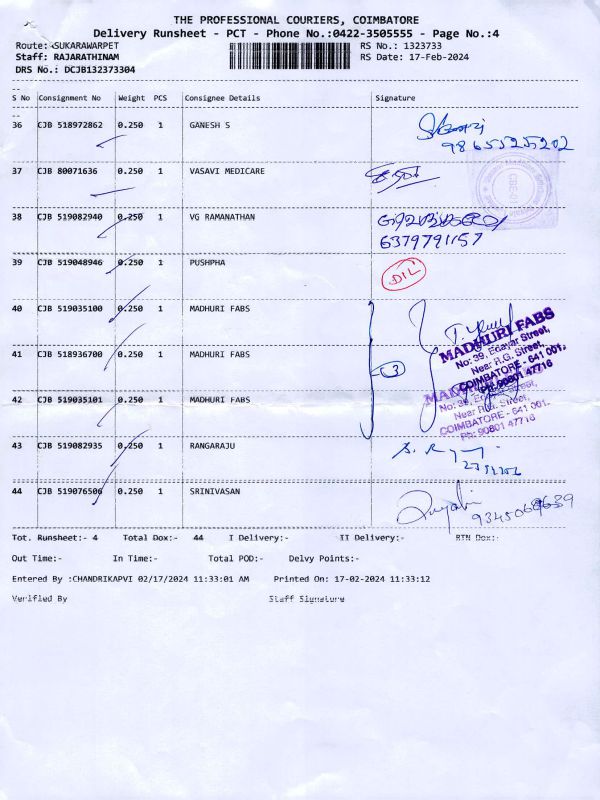 THE PROFESSIONAL COURIERS, COIMBATORE
Delivery Runsheet - PCT - Phone No.:0422-3505555 - Page No.:4
Route: SUKARAWARPET RS No.: 1323733
Staff: RAJARATHINAM RS Date: 17-Feb-2024
DRS No.: DCJB132373304
S No Consignment No Weight PCS Consignee Details Signature
36 CJB 518972862 0.250 1 GANESH S
9865525202
37 CJB 80071636 0.250 1 VASAVI MEDICARE
38 CJB 519082940 0.250 1 VG RAMANATHAN
6379791157
39 CJB 519048946 0.250 1 PUSHPHA
D/L
40 CJB 519035100 0.250 1 MADHURI FABS
MADHURI FABS
No: 39, Edayar Street,
Near R.G. Street,
COIMBATORE - 641 001.
Ph: 90801 47716
41 CJB 518936700 0.250 1 MADHURI FABS
3
42 CJB 519035101 0.250 1 MADHURI FABS
COIMBATORE - 641 001.
Ph: 90801 47716
43 CJB 519082935 0.250 1 RANGARAJU
44 CJB 519076506 0.250 1 SRINIVASAN
Tot. Runsheet:- 4 Total Dox:- 44 I Delivery:- II Delivery:- RTN Dox:-
Out Time:- In Time:- Total POD:- Delvy Points:-
Entered By :CHANDRIKAPVI 02/17/2024 11:33:01 AM Printed On: 17-02-2024 11:33:12
Verified By Staff Signature